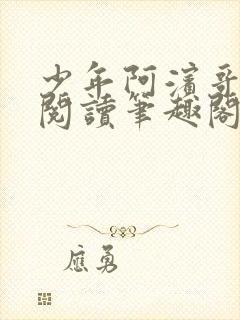 少年阿濱哥
閱讀筆趣閣
應勇